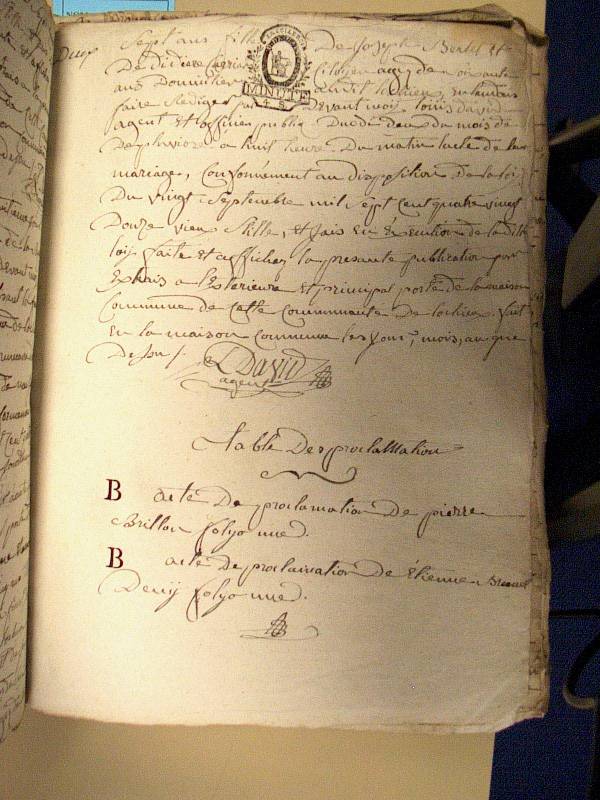 Sept ans fille De Joseph Bertet et
De
aux Domicilier dudit
faire Rediger par Devant moy louis David
MINUTE
agent et officier public Dudit deux du mois de
De pluviose a huit heure Du matin lacte de leur
mariage, Conformément au disposition De la loi
Du vingt Septembre mil Sept Cent quatre vingt
Douze vieu Stille, et fais en Execution de la ditte
loix faite et afficher la presante publication par
Extrais a l'Exterieure et principal porte de la maison
Commune de Cette Communauté de fait
En la maison Commune les jour, mois, an que
Dessu /.
L David
agent
table Des proclamation
B acte De proclamation De pierre
Brillon folyo une.
B acte De proclamation de Etienne
folyo une.